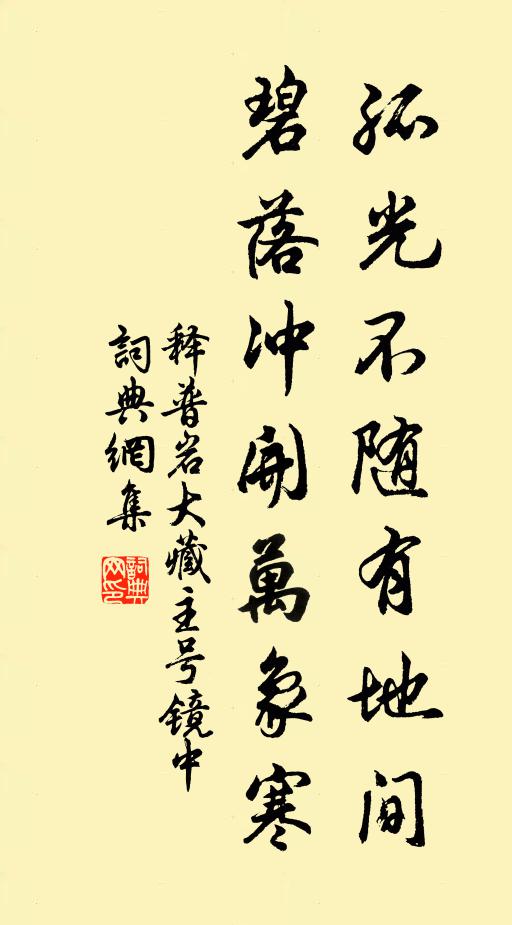 孤光不随有地间
碧落冲開萬象寒
释普岩大藏主号镜中
詞典網集
詞典网印